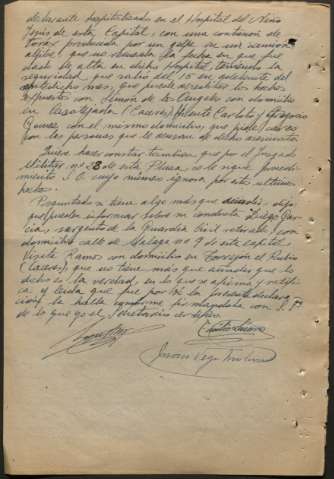 de los ante hospitalizado en el Hospital del Niño
Jesús de esta Capital, con una contusión de
torax producida por un golpe en un
que no recuerda la fecha en que fué
dado de alta en dicho Hospital, teniendo la
seguridad que salió del 15 en adelante del
mes, que puede acreditar los hechos
expuestos con Simón de los Angeles con domicilio
en (Caceres) Vicente Carbalo y Gregorio
Gomez, con el mismo domicilio, que
por las personas que le acusan de dichos asesinatos
Quiere hacer constar tambien que por el Juzgado
Militar no 3 de esta Plaza, se le sigue procedi-
miento S. O. cuyo número ignora por estos ultimos
hechos.
Preguntado si tiene algo más que decir, dijo
que pueden informar sobre su conducta Diego Gar-
cia, sargento de la Guardia Civil retirado, con
domicilio calle de Malaga no 9 de esta capital,
Vicente Ramos con domicilio en Torrejon el Rubio
(Caceres), que no tiene más que decir que lo
dicho es la verdad, en lo que se afirma y ratifi-
ca y leida que fue por mi la presente declara-
ción, la halla conforme firmandola con S. Sª
de lo que yo el Secretario certifico.